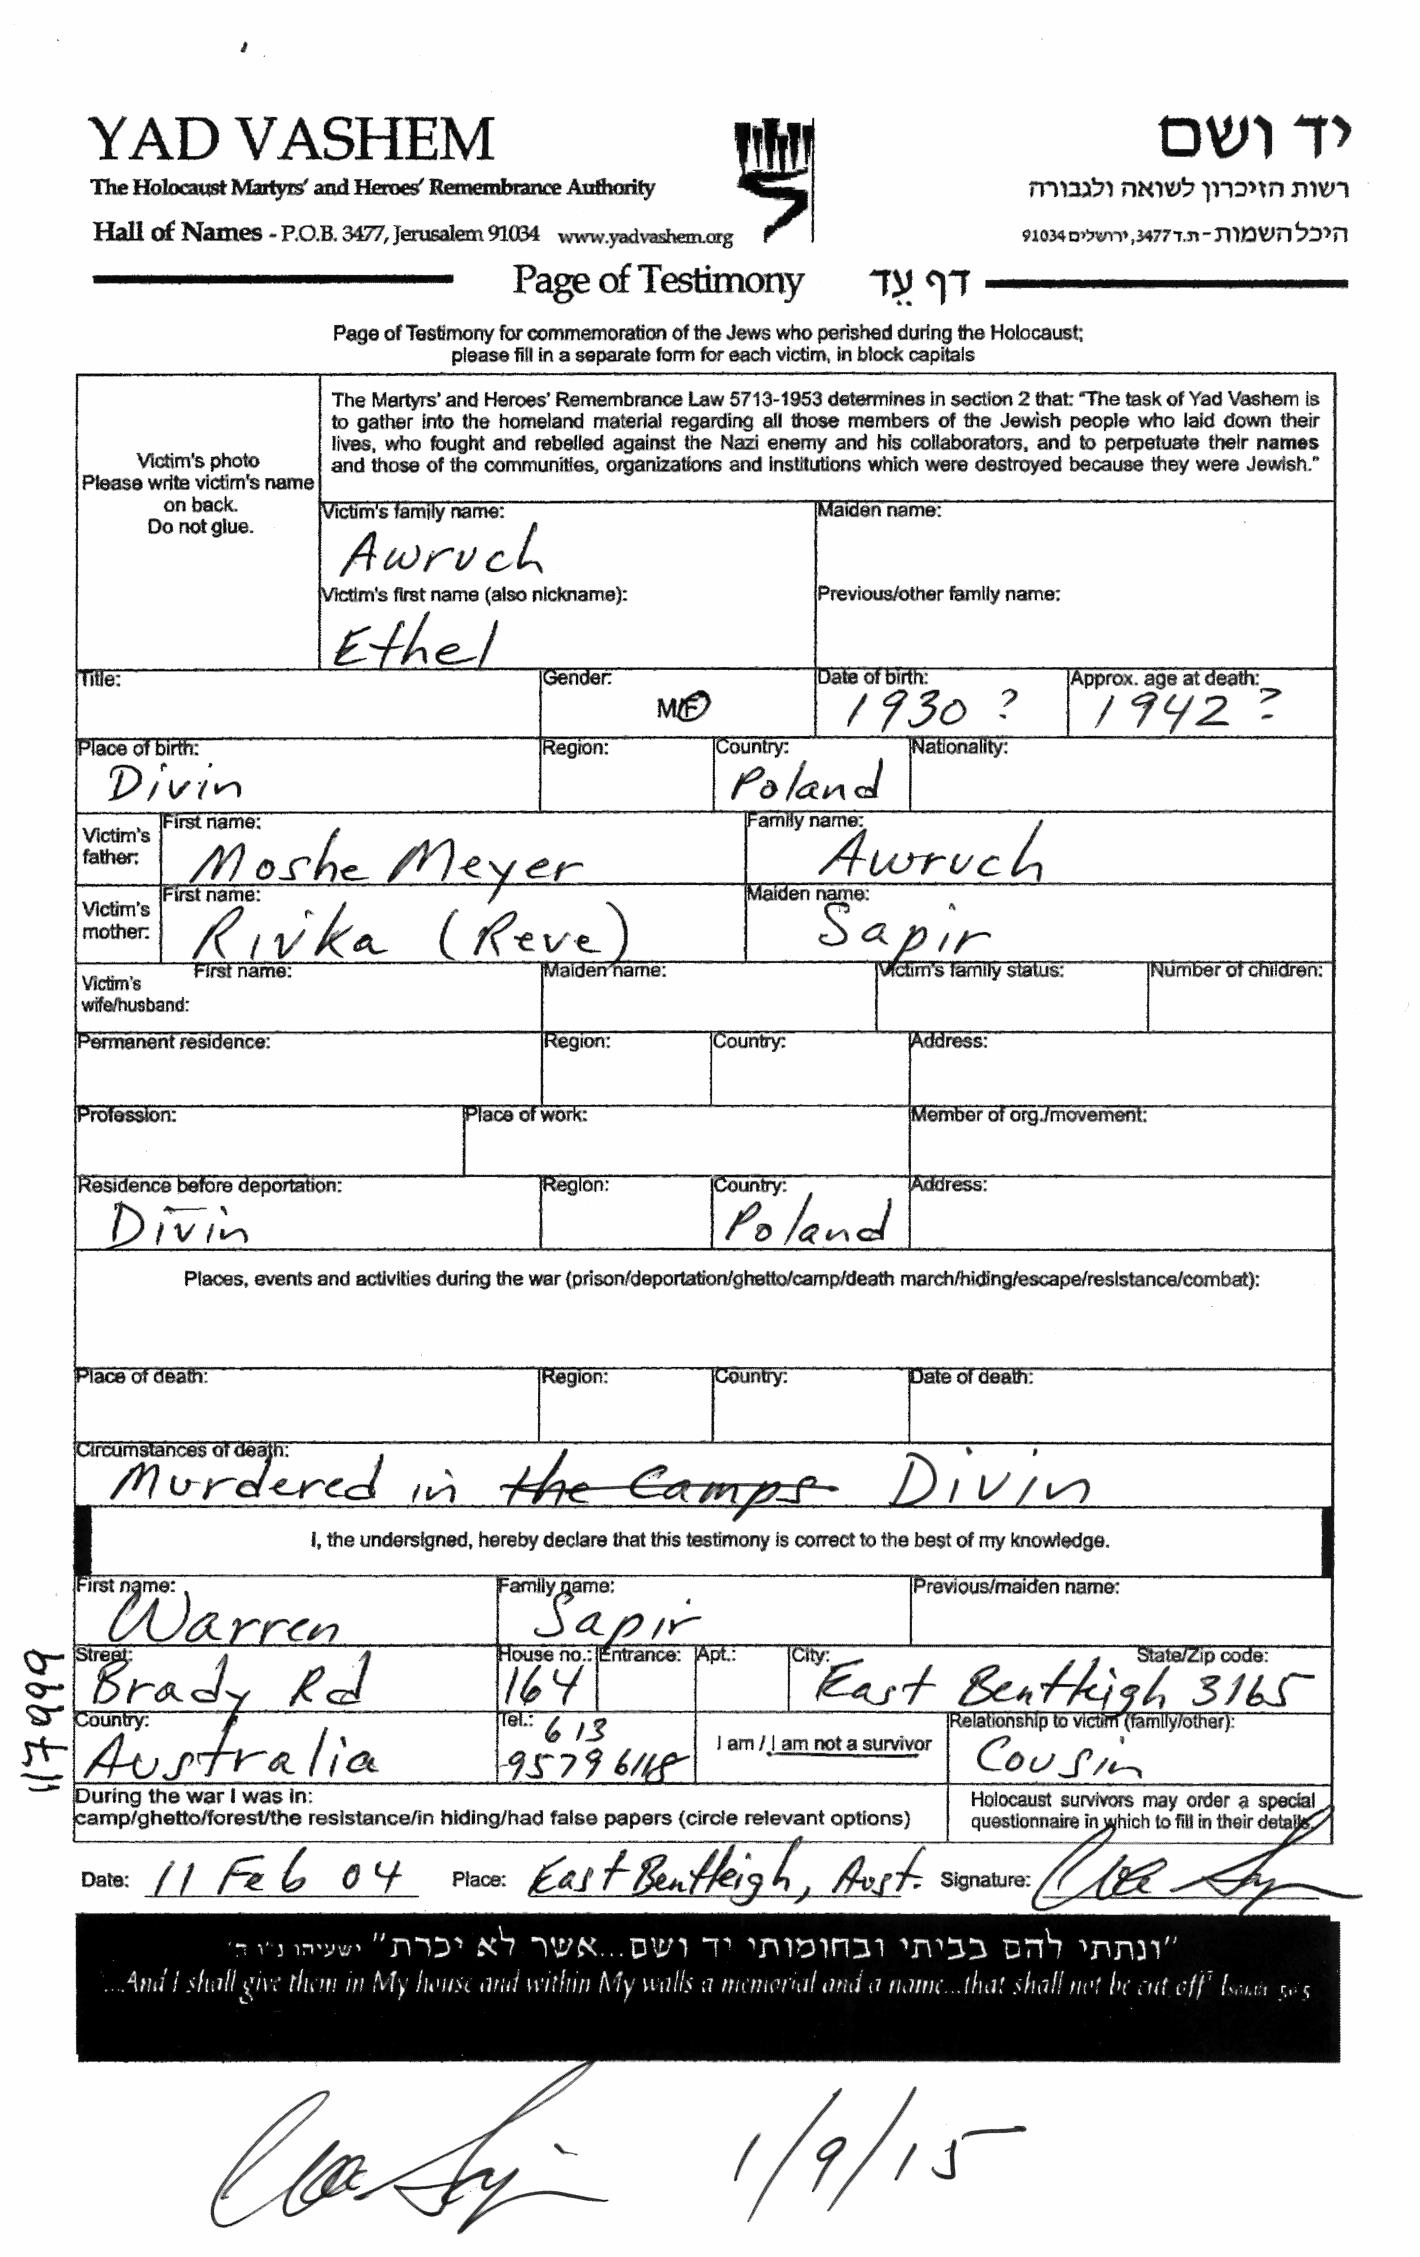 YAD VASHEM
יד ושם
The Holocaust Martyrs' and Heroes' Remembrance Authority
רשות הזיכרון לשואה ולגבורה
Hall of Names - P.O.B. 3477, Jerusalem 91034 www.yadvashem.org
היכל השמות - ת.ד 3477, ירושלים 91034
Page of Testimony דף עֵד
Page of Testimony for commemoration of the Jews who perished during the Holocaust;
please fill in a separate form for each victim, in block capitals
Victim's photo
Please write victim's name
on back.
Do not glue.
The Martyrs' and Heroes' Remembrance Law 5713-1953 determines in section 2 that: "The task of Yad Vashem is
to gather into the homeland material regarding all those members of the Jewish people who laid down their
lives, who fought and rebelled against the Nazi enemy and his collaborators, and to perpetuate their names
and those of the communities, organizations and institutions which were destroyed because they were Jewish."
Victim's family name: Maiden name:
Awruch
Victim's first name (also nickname): Previous/other family name:
Ethel
Title: Gender: Date of birth: Approx. age at death:
M/F 1930 ? 1942 ?
Place of birth: Region: Country: Nationality:
Divin Poland
Victim's father: First name: Family name:
Moshe Meyer Awruch
Victim's mother: First name: Maiden name:
Rivka (Reve) Sapir
Victim's wife/husband: First name: Maiden name: Victim's family status: Number of children:
Permanent residence: Region: Country: Address:
Profession: Place of work: Member of org./movement:
Residence before deportation: Region: Country: Address:
Divin Poland
Places, events and activities during the war (prison/deportation/ghetto/camp/death march/hiding/escape/resistance/combat):
Place of death: Region: Country: Date of death:
Circumstances of death:
Murdered in the Camps Divin
I, the undersigned, hereby declare that this testimony is correct to the best of my knowledge.
First name: Family name: Previous/maiden name:
Warren Sapir
Street: House no.: Entrance: Apt.: City: State/Zip code:
Brady Rd 164 East Bentleigh 3165
Country: Tel.: Relationship to victim (family/other):
Australia 613 I am / I am not a survivor Cousin
117999
During the war I was in:
camp/ghetto/forest/the resistance/in hiding/had false papers (circle relevant options)
Holocaust survivors may order a special
questionnaire in which to fill in their details.
Date: 11 Feb 04 Place: East Bentleigh, Aust. Signature:
"ונתתי להם בביתי ובחומותי יד ושם...אשר לא יכרת" ישעיהו נ"ו ה'
"...And I shall give them in My house and within My walls a memorial and a name...that shall not be cut off" Isaiah 56:5
1/9/15